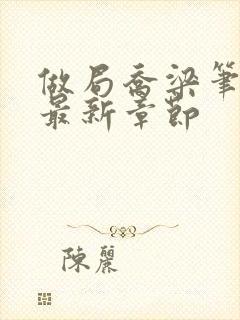 做局喬梁筆
最新章節
陳麗